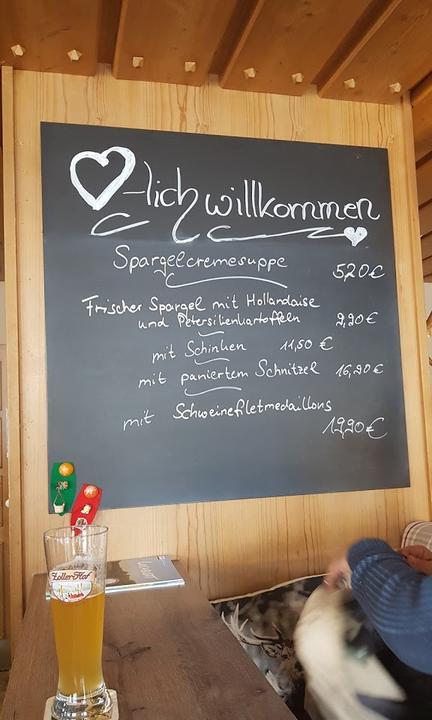 ♡-lich willkommen
Spargelcremesuppe 5,20€
Frischer Spargel mit Hollandaise
und Petersilienkartoffeln 9,90€
mit Schinken 11,50 €
mit paniertem Schnitzel 16,90€
mit Schweinefiletmedaillons
19,90€
Zoller-Hof